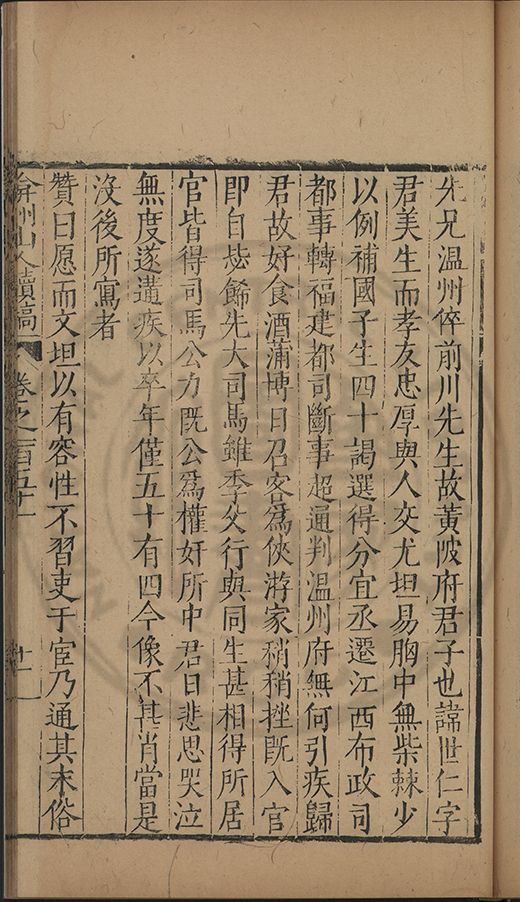 先兄温州倅前川先生故黃陂府君子也諱世仁字
君美生而孝友忠厚與人交尤坦易胸中無柴棘少
以例補國子生四十謁選得分宜丞遷江西布政司
都事轉福建都司斷事超通判温州府無何引疾歸
君故好食酒蒲博日召客爲俠游家稍稍挫既入官
即自㤠飭先大司馬雖季父行與同生甚相得所居
官皆得司馬公力既公爲權奸所中君日悲思哭泣
無度遂遘疾以卒年僅五十有四今像不甚肖當是
沒後所寫者
贊曰愿而文坦以有容性不習吏于宦乃通其末俗
弇州山人續稿
卷之一百五十一
十一